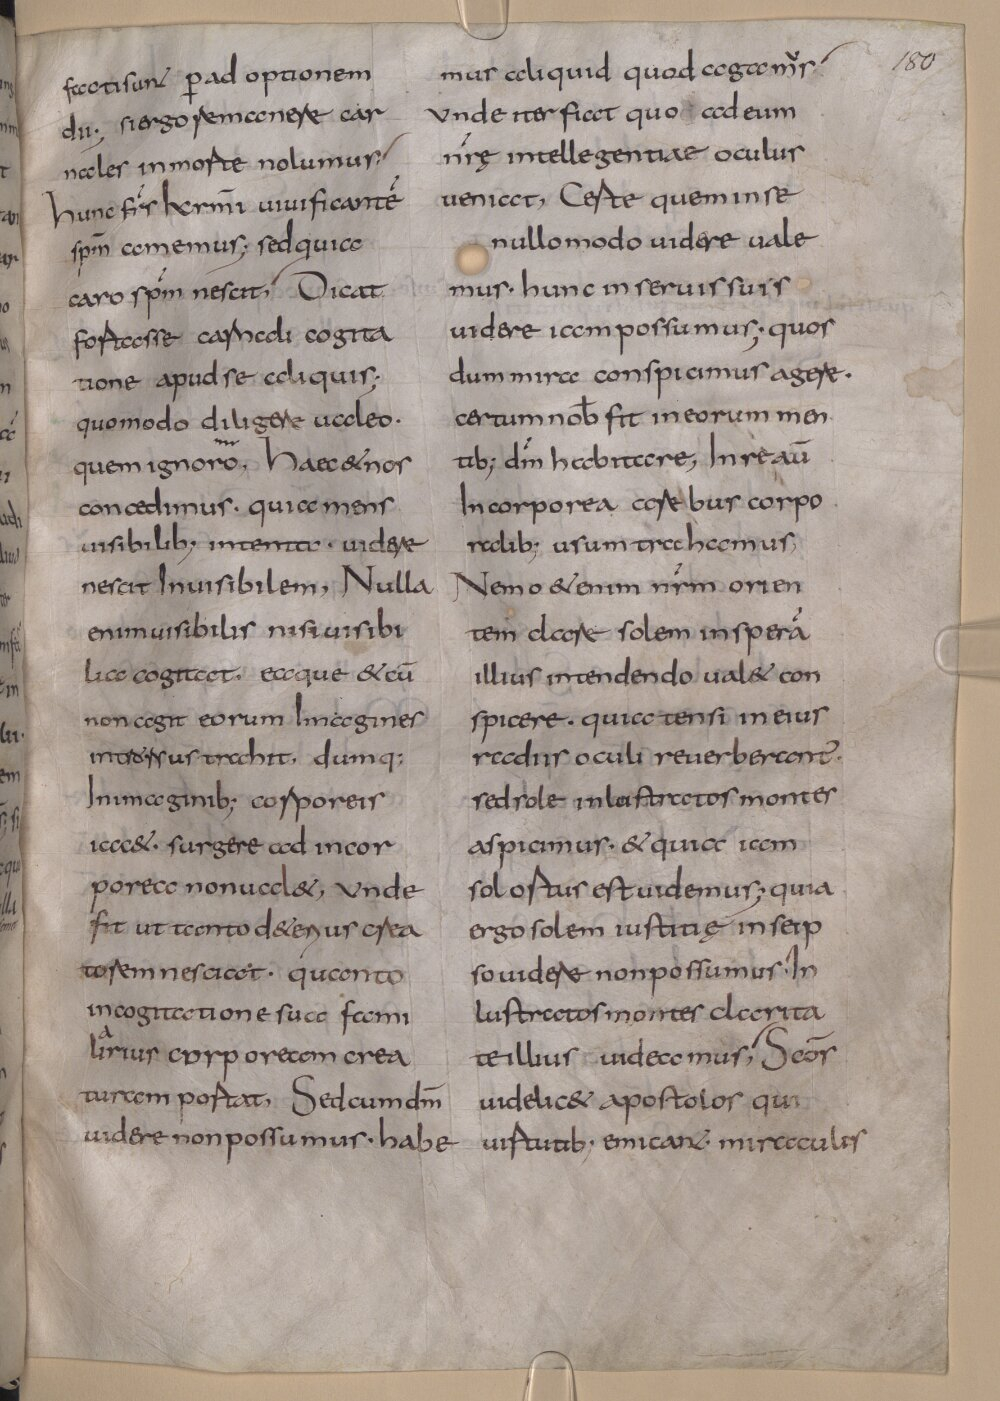 180
facti sun̄ ꝑ ad optionem
dii; si ergo remanere car
nales in morte nolumus;
hunc fr̄s kar̄mi uiuificantē
sp̄m amemus; sed quia
caro sp̄m nescit, Dicat
fortasse carnali cogita
tione apud se aliquis;
quomodo diligere ualeo.
quem ignoro, Haec & nos
concedimus. quia mens
uisibilib; intenta. uidere
nescit Inuisibilem, Nulla
enim uisibilis nisi uisibi
lia cogitat. eaque & cū
non agit eorum Imagines
introrsus trahit. dumq;
In imaginib; corporeis
iac&. surgere ad incor
porea non ual&, vnde
fit ut tanto d&erius crea
torem nesciat. quanto
in cogitatione sua fami
liarius corpoream crea
turam portat, Sed cum dm̄
uidere non possumus. habe
mus aliquid quod agam̄s;
vnde iter fiat quo ad eum
nr̄ę intellegentiae oculus
ueniat, Certe quem in se
nullo modo uidere uale
mus. hunc in seruis suis
uidere iam possumus; quos
dum mira conspicimus agere.
certum nob̄ fit in eorum men
tib; dm̄ habitare, In re aū
Incorporea a rebus corpo
ralib; usum trahamus,
Nemo & enim nr̄m orien
tem clare solem in sperā
illius intendendo ual& con
spicere. quia tensi in eius
radiis oculi reuerberant̄.
sed sole inlustratos montes
aspicimus. & quia iam
sol ortus est uidemus; quia
ergo solem iustitię in seip
so uidere non possumus. In
lustratos montes clarita
te illius uideamus, Scōs
uidelic& apostolos qui
uirtutib; emican̄. miraculis